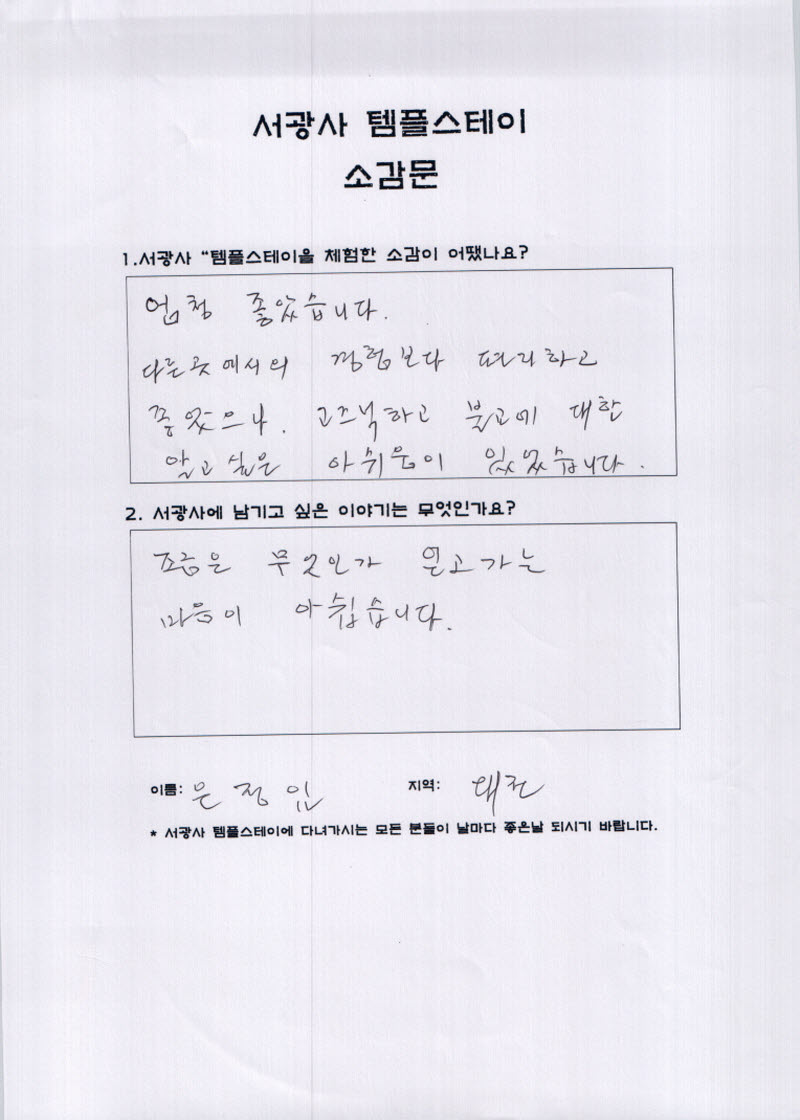 서광사 템플스테이
소감문
1.서광사 “템플스테이을 체험한 소감이 어땠나요?
엄청 좋았습니다.
다른곳에서의 경험보다 편리하고
좋았으나. 고즈넉하고 불교에 대한
알고싶은 아쉬움이 있었습니다.
2. 서광사에 남기고 싶은 이야기는 무엇인가요?
조금은 무엇인가 잃고가는
마음이 아쉽습니다.
이름: 은정인 지역: 대전
* 서광사 템플스테이에 다녀가시는 모든 분들이 날마다 좋은날 되시기 바랍니다.